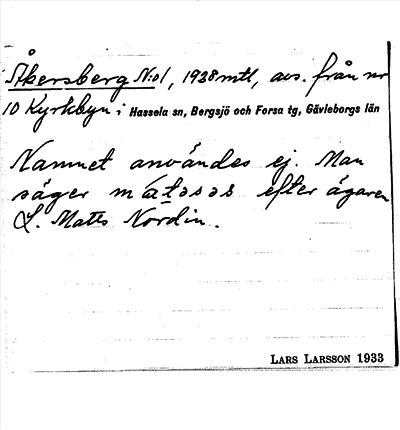 Åkersberg N:o 1, 1938 mtl, avs. från nr
10 Kyrkbyn i Hassela sn, Bergsjö och Forsa tg, Gävleborgs län
Namnet användes ej. Man
säger matsəs efter ägaren
L. Matts Nordin.
LARS LARSSON 1933